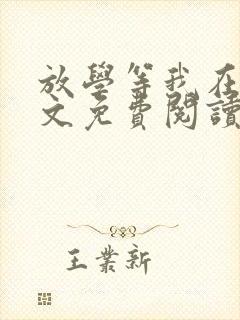 放學等我在
文免費閱讀
王業新